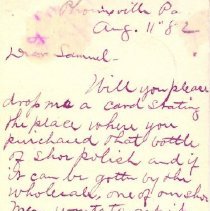 Phoenixville Pa
Aug. 11" 82
Dear Samuel-
Will you please
drop me a card stating
the place where you
purchased that bottle
of shoe polish and if
it can be gotten by the
wholesale, one of our shoe